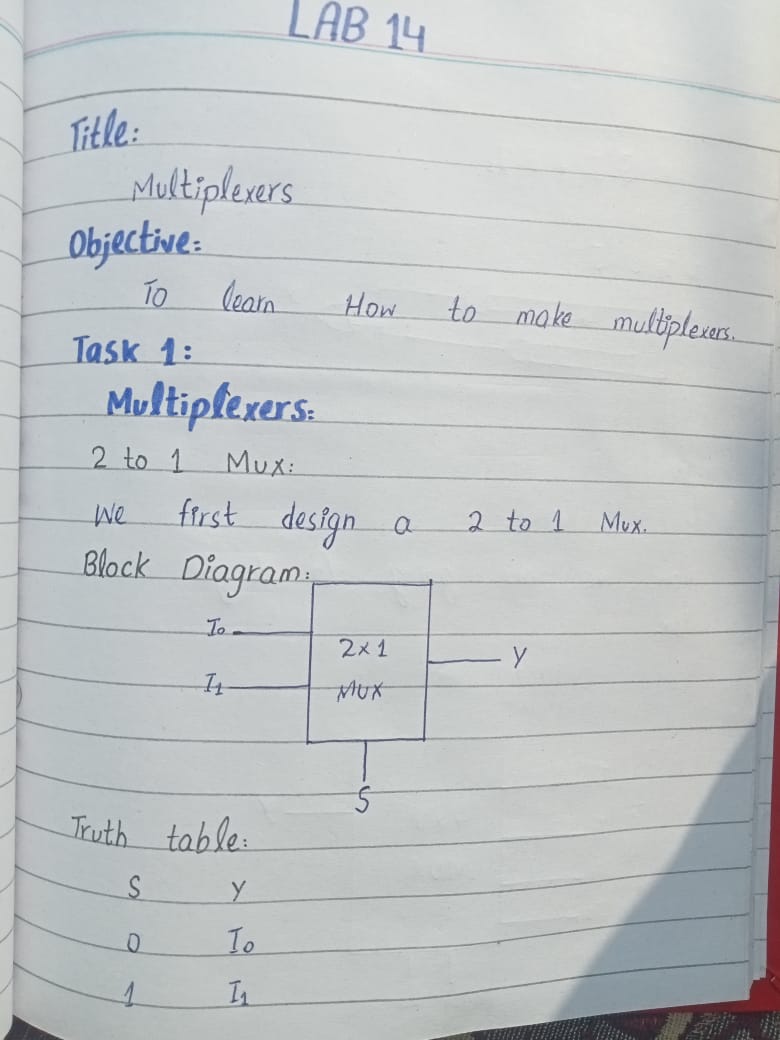 LAB 14
Title:
Multiplexers
Objective:
To learn How to make multiplexers.
Task 1:
Multiplexers:
2 to 1 Mux:
We first design a 2 to 1 Mux.
Block Diagram:
I0
2x1
Y
I1
MUX
S
Truth table:
S Y
0 I0
1 I1